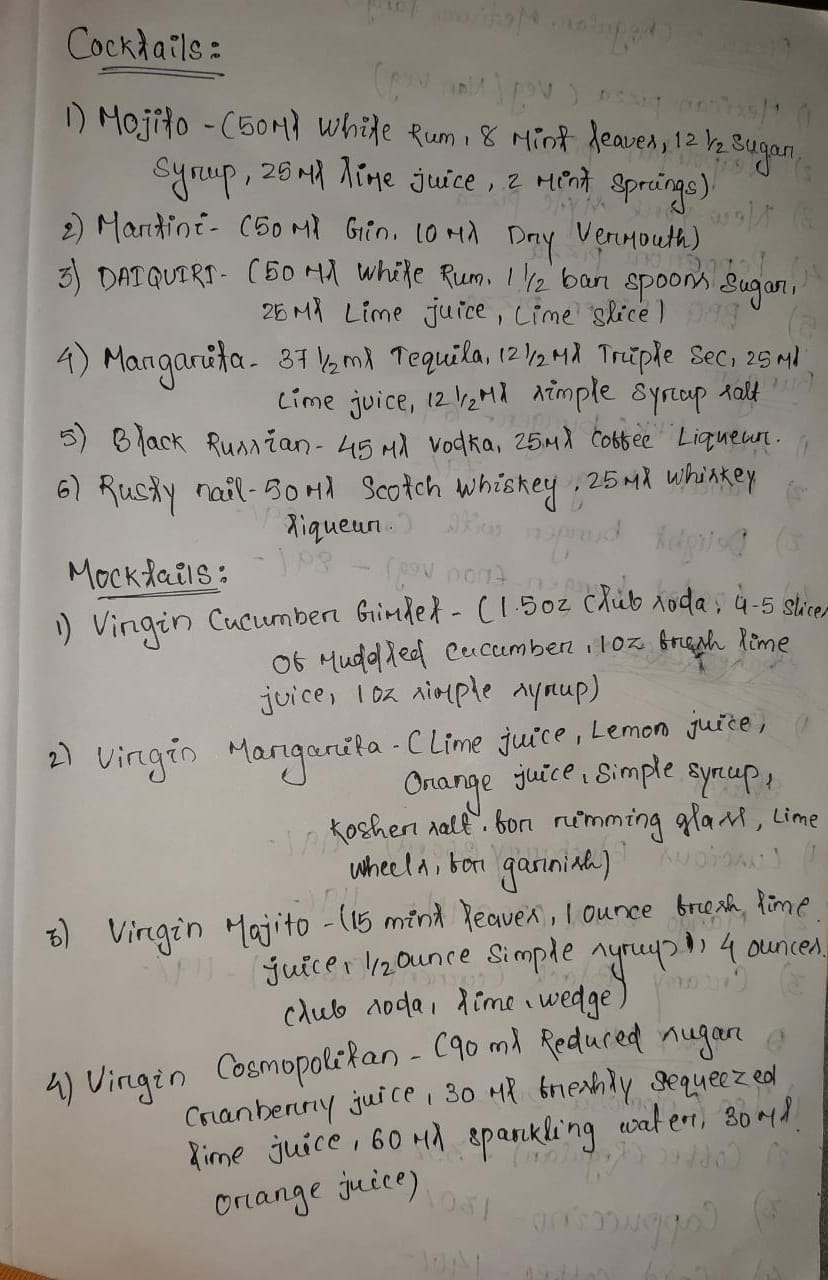 Cocktails:
1) Mojito - (50Ml White Rum, 8 Mint leaves, 12 1/2 Sugar
Syrup, 25 Ml lime juice, 2 Mint Springs)
2) Martini - (50 Ml Gin, 10 Ml Dry Vermouth)
3) DAIQUIRI - (50 Ml White Rum, 1 1/2 bar spoons Sugar,
25 Ml Lime juice, Lime slice)
4) Margarita - 37 1/2 ml Tequila, 12 1/2 Ml Triple Sec, 25 Ml
Lime juice, 12 1/2 Ml simple Syrup salt
5) Black Russian - 45 Ml Vodka, 25 Ml Coffee Liqueur.
6) Rusty nail - 50 Ml Scotch Whiskey, 25 Ml whiskey
liqueur.
Mocktails:
1) Virgin Cucumber Gimlet - (1.5oz Club soda, 4-5 Slices
Of Muddled Cucumber, 1oz fresh lime
juice, 1 oz simple syrup)
2) Virgin Margarita - (Lime juice, Lemon juice,
Orange juice, Simple syrup,
Kosher salt. for rimming glass, Lime
wheels, for garnish)
3) Virgin Mojito - (15 mint leaves, 1 ounce fresh lime
juice, 1/2 ounce simple syrup), 4 ounces
club soda, lime wedge)
4) Virgin Cosmopolitan - (90 ml Reduced sugar
Cranberry juice, 30 Ml freshly sequeezed
lime juice, 60 Ml sparkling water, 30 Ml
orange juice)